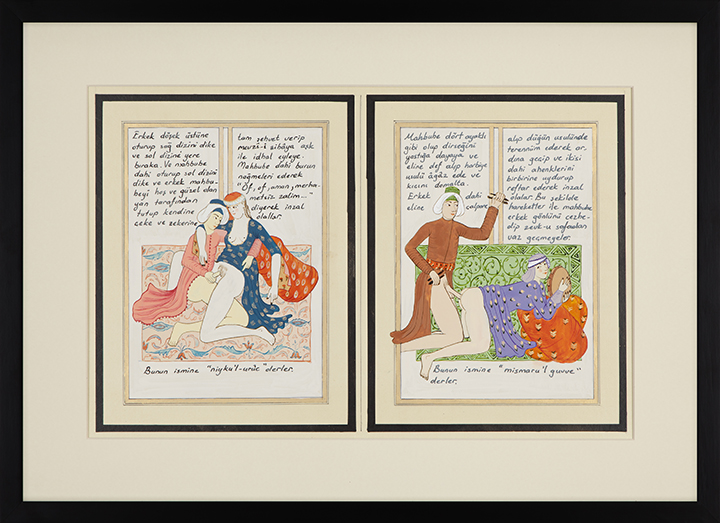 Erkek döşek üstüne
oturup sağ dizini dike
ve sol dizini yere
bıraka. Ve mahbube
dahi oturup sol dizini
dike ve erkek mahbu-
beyi hoş ve güzel olan
yan tarafından
tutup kendine
çeke ve zekerine
tam şehvet verip
ile idhal eyleye.
Mahbube dahi burun
nağmeleri ederek
"Of, of, aman, merha-
metsiz zalim..."
diyerek inzal
olalar.
Bunun ismine "niykü'l-urûc" derler.
Mahbube dört ayaklı
gibi olup dirseğini
yastığa dayaya ve
eline def alıp harbiye
usulü âğâz ede ve
kıçını domalta.
Erkek dahi
eline çalpare
alıp düğün usulünde
terennüm ederek ar-
dına geçip ve ikisi
dahi ahenklerini
birbirine uydurup
reftar ederek inzal
olalar. Bu şekilde
hareketler ile mahbube
erkek gönlünü cezbe-
dip zevk-u safadan
vaz geçmeyeler.
Bunun ismine "mismarü'l guvve"
derler.